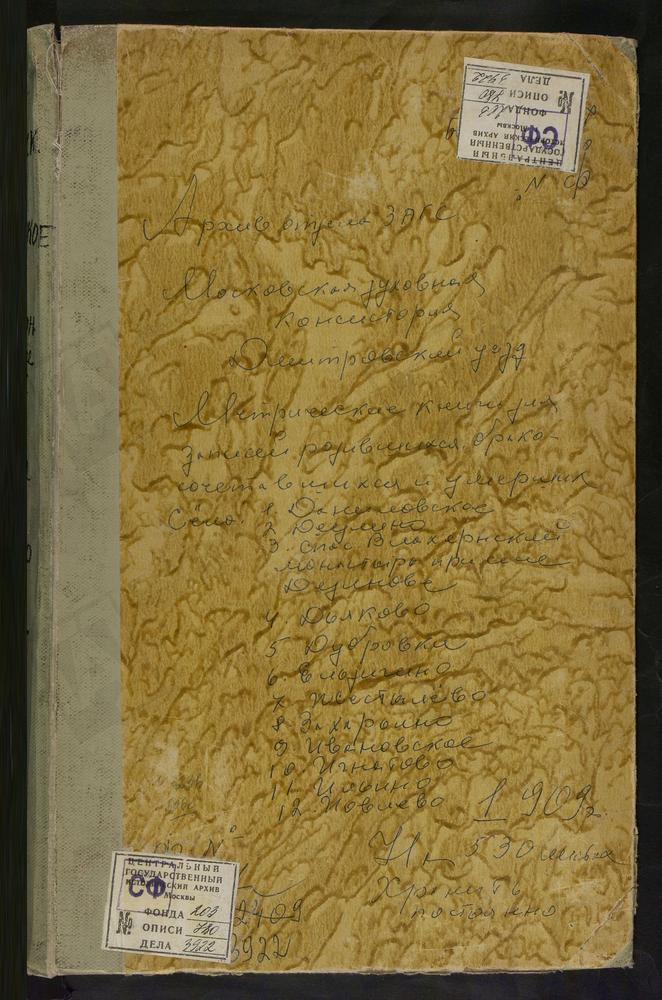 ЦЕНТРАЛЬНЫЙ
ГОСУДАРСТВЕННЫЙ
ИСТОРИЧЕСКИЙ АРХИВ
Москвы
СФ
ФОНДА 203
№ ОПИСИ 780
ДЕЛА 3922
СФ
Архив отдела ЗАГС
Московская духовная
консистория
Дмитровский уезд
Метрические книги для
записей родившихся, брако-
сочетавшихся и умерших
Село: 1. Даниловское
2 Деулино
3. Спас Влахернский
монастырь при селе
Деденове
4. Дьяково
5 Дубровки
6. Ельдигино
7. Жестылево
8 Захарьино
9. Ивановское
10. Игнатово
11. Ильино
12. Иовлево
1909г.
На 530 листах
Хранить
постоянно
ЦЕНТРАЛЬНЫЙ
ГОСУДАРСТВЕННЫЙ
ИСТОРИЧЕСКИЙ АРХИВ
Москвы
СФ
ФОНДА 203
№ ОПИСИ 780
ДЕЛА 3922
2409
3922